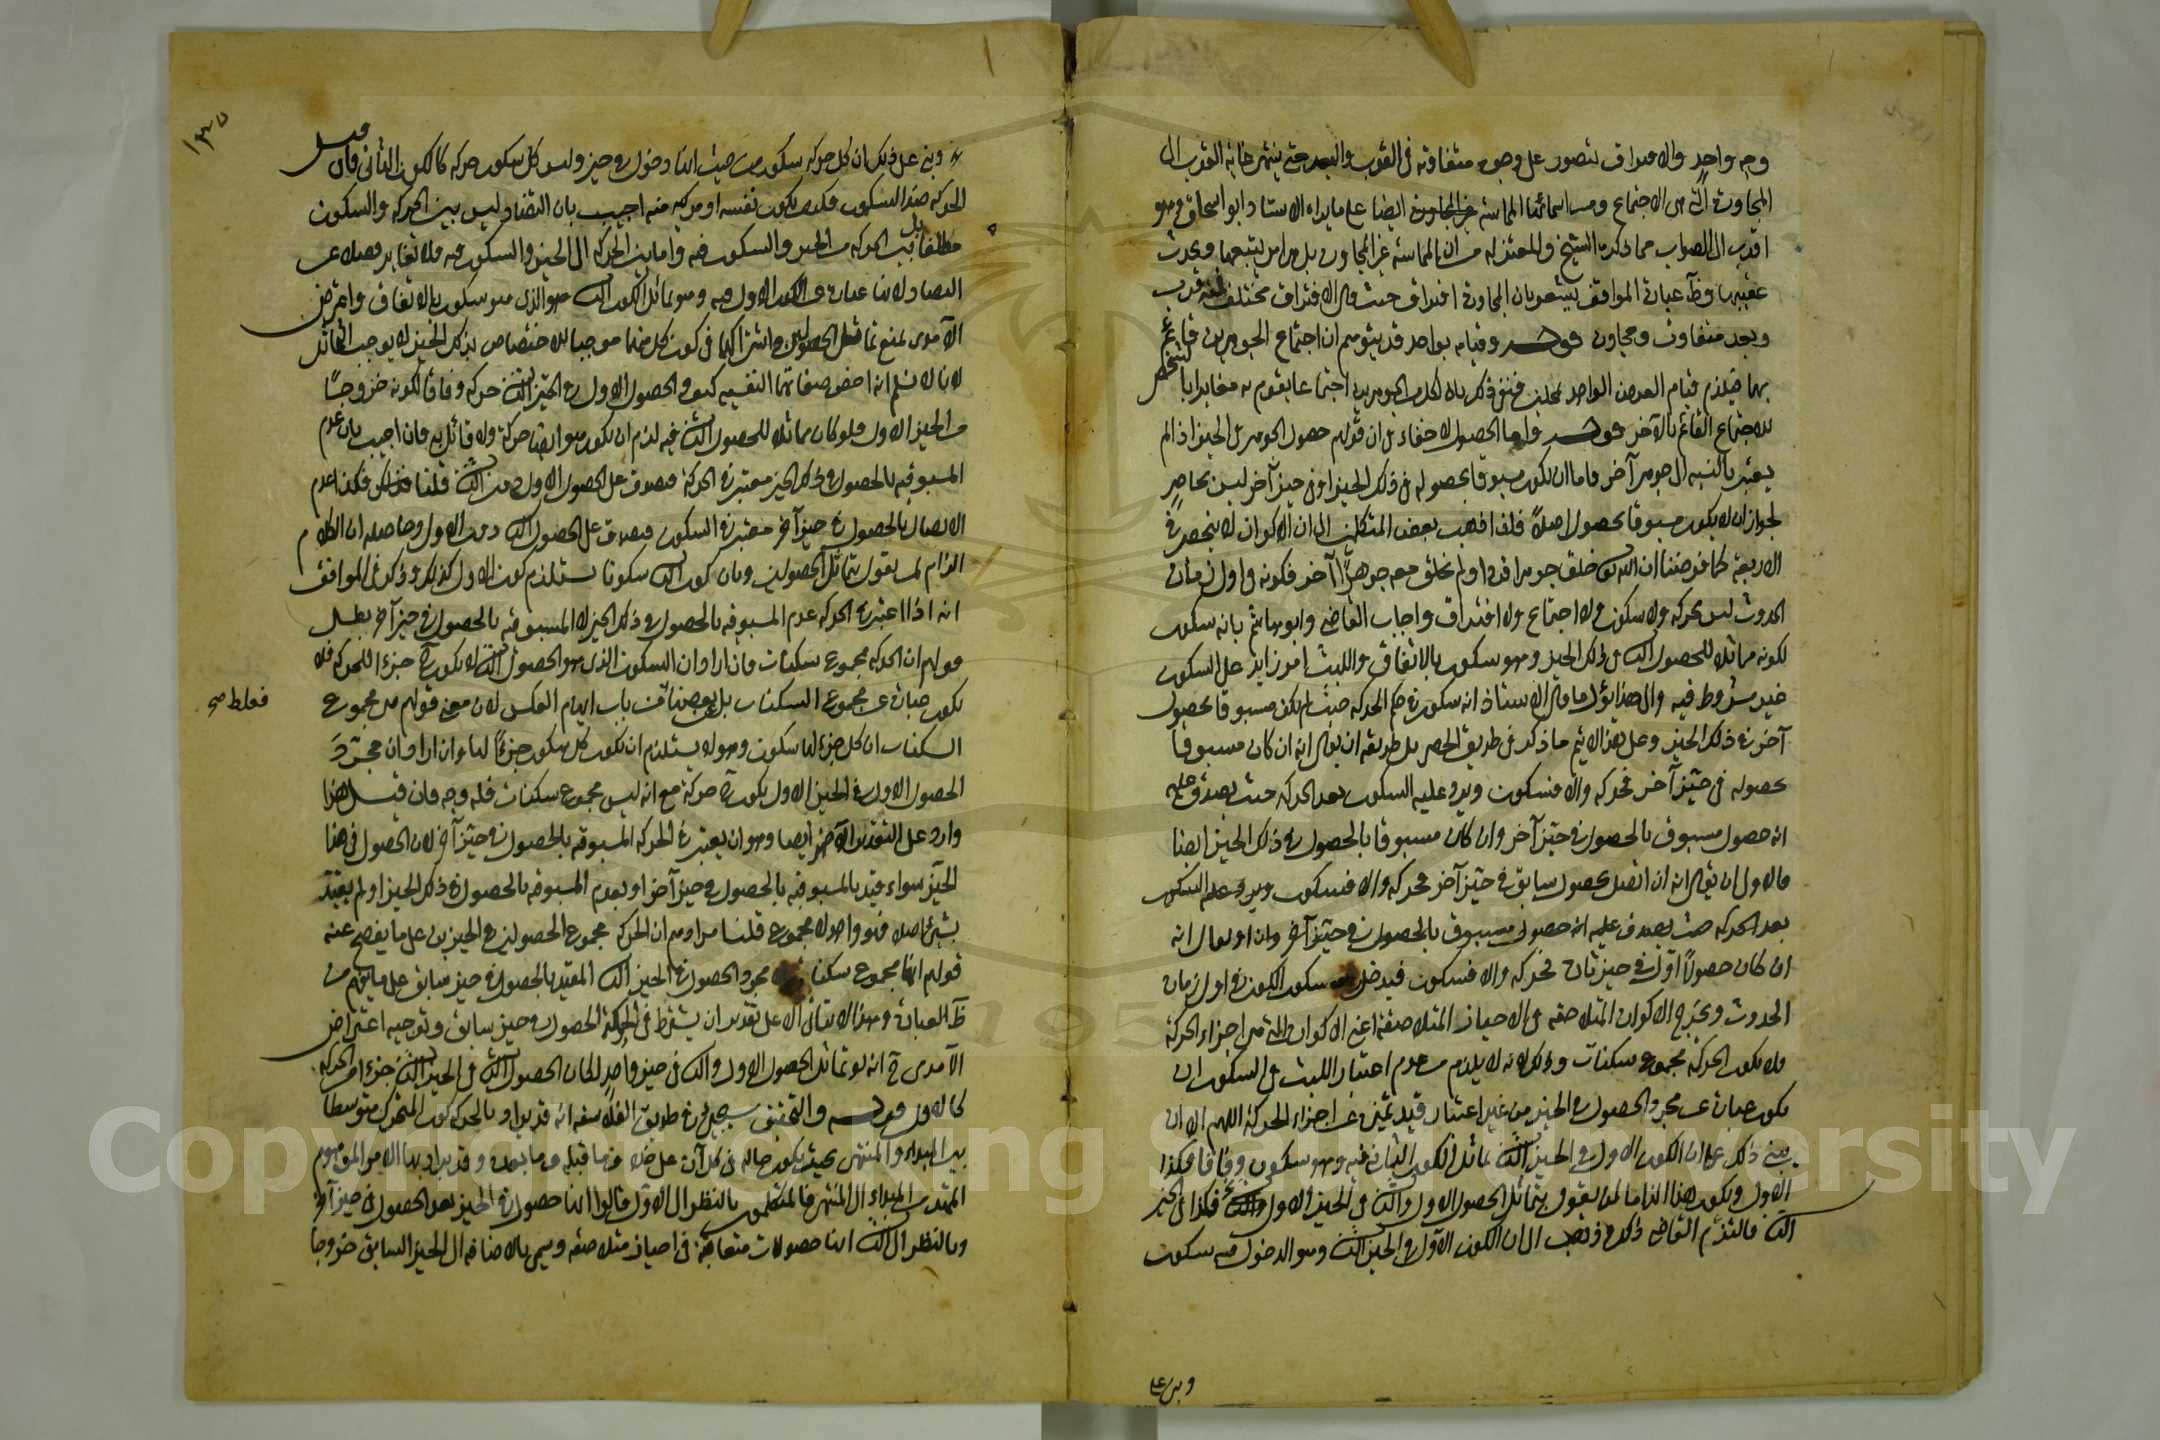 وجه واحد والافتراق يتصور على وجوه متفاوتة في القرب والبعد حتى ينتهي غاية القرب الى
المجاورة التي هي الاجتماع ومن اسمائها المماسة ايضا على ما يراه الاستاذ ابو اسحاق وهو
اقرب الى الصواب مما ذكره الشيخ والمعتزلة من ان المماسة غير المجاورة بل هي امر يتبعها ويحدث
عقيبها وظ عبارة المواقف يشعر بان المجاورة افتراق حيث قال الافتراق مختلف فمنه قرب
وبعد متفاوت ومجاورة قوله وقيامه بواحد قد يتوهم ان اجتماع الجوهرين قائم
بهما فيلزم قيام العرض الواحد بمحلين فنفى ذلك بان لكل من الجوهرين اجتماعا يقوم به مغايرا بالشخص
للاجتماع القائم بالآخر قوله واما الحصول لا خفاء في ان قولهم حصول الجوهر في الحيز اذا لم
يعتبر بالنسبة الى جوهر آخر فاما ان يكون مسبوقا بحصوله في ذلك الحيز او في حيز آخر ليس بحاصر
لجواز ان لا يكون مسبوقا بحصول اصلا فلذا ذهب بعض المتكلمين الى ان الاكوان لا ينحصر في
الاربعة كما فرضنا ان الله تع خلق جوهرا فردا ولم يخلق معه جوهرا آخر فكونه في اول زمان
الحدوث ليس بحركة ولا سكون ولا اجتماع ولا افتراق واجاب القاضي وابو هاشم بانه سكون
لكونه مماثلا للحصول الثاني في ذلك الحيز وهو سكون بالاتفاق واللبث امر زايد على السكون
غير مشروط فيه والى هذا يؤل ما قال الاستاذ انه سكون في حكم الحركة حيث لم يكن مسبوقا بحصول
آخر في ذلك الحيز وعلى هذا لا يتم ما ذكر في طريق الحصر بل طريقه ان يقال انه ان كان مسبوقا
بحصوله في حيز آخر فحركة والا فسكون ويرد عليه السكون بعد الحركة حيث يصدق عليه
انه حصول مسبوق بالحصول في حيز آخر وان كان مسبوقا بالحصول في ذلك الحيز ايضا
فالاولى ان يقال انه ان اتصل بحصول سابق في حيز آخر فحركة والا فسكون ويرد عليه السكون
بعد الحركة حيث يصدق عليه انه حصول مسبوق بالحصول في حيز آخر وان او يقال انه
ان كان حصولا اول في حيز ثان فحركة والا فسكون فيدخل في سكون الكون في اول زمان
الحدوث ويخرج الاكوان المتلاحقة في الاحياز المتلاصقة اعني الاكوان التي هي اجزاء الحركة
فلا يكون الحركة مجموع سكنات وذلك لانه لا يلزم من عدم اعتبار اللبث في السكون ان
يكون عبارة عن مجرد الحصول في الحيز من غير اعتبار قيد تميزه عن اجزاء الحركة اللهم الا ان
يبنى ذلك على ان الكون الاول في الحيز الثاني مماثل للكون الثاني فيه وهو سكون وفاقا فكذا
الاول ويكون هذا الزاما لمن يقول بتماثل الحصول الاول والثاني في الحيز الاول فكذا في الحيز
الثاني فالتزم القاضي ذلك وذهب الى ان الكون الاول في الحيز الثاني وهو الدخول فيه سكون
وبنى على
١٣٥
وبنى على ذلك ان كل حركة سكون من حيث انها دخول في حيز وليس كل سكون حركة كالكون الثاني فان قيل
الحركة ضد السكون فكيف يكون نفسه او مركبة منه اجيب بان التضاد ليس بين الحركة والسكون
مطلقا بل بين الحركة من الحيز والسكون فيه واما بين الحركة الى الحيز والسكون فيه فلا تغاير فضلا عن
التضاد لانها عبارة عن الكون الاول فيه وهو مماثل للكون الثاني فيه الذي هو سكون بالاتفاق واعترض
الآمدي بمنع تماثل الحصولين واشتراكهما في كون كل منهما موجبا للاختصاص بذلك الحيز لا يوجب التماثل
لانا لا نسلم انه اخص صفاتهما النفسية كيف والحصول الاول في الحيز الثاني حركة وفاقا لكونه خروجا
من الحيز الاول فلو كان مماثلا للحصول الثاني فيه لزم ان يكون هو ايضا حركة ولا قائل به فان اجيب بان عدم
المسبوقية بالحصول في ذلك الحيز معتبر في الحركة فيصدق على الحصول الاول دون الثاني قلنا فكذا عدم
الاتصال بالحصول في حيز آخر معتبر في السكون فيصدق على الحصول الثاني دون الاول وحاصله ان الكلام
الزام لمن يقول بتماثل الحصولين وبان كون الثاني سكونا يستلزم كون الاول كذلك وذكر في المواقف
انه اذا اعتبر في الحركة عدم المسبوقية بالحصول في ذلك الحيز لا المسبوقية بالحصول في حيز آخر بطل
قولهم ان الحركة مجموع سكنات فان ارادوا ان السكون الذي هو الحصول الثاني لا يكون جزءا للحركة فلا
يكون عبارة عن مجموع السكنات بل بعضها من باب ايهام العكس لان معنى قولهم هي مجموع
فغلط صح
السكنات ان كل جزء لها سكون وهو لا يستلزم ان يكون كل سكون جزءا لها وان ارادوا ان مجرد
الحصول الاول في الحيز الاول يكون حركة مع انه ليس مجموع سكنات فله وجه فان قيل هذا
وارد على التقدير الآخر ايضا وهو ان يعتبر في الحركة المسبوقية بالحصول في حيز آخر لان الحصول في هذا
الحيز سواء قيد بالمسبوقية بالحصول في حيز آخر او بعدم المسبوقية بالحصول في ذلك الحيز او لم يقيد
بشيء اصلا فهو واحد لا مجموع قلنا مرادهم ان الحركة مجموع الحصولين في الحيزين على ما يفصح عنه
قولهم انها مجموع سكنات لا مجرد الحصول في الحيز الثاني المقيد بالحصول في حيز سابق على ما يفهم من
ظ العبارة وهذا لا يتأتى الا على تقدير ان يشترط في الحركة الحصول في حيز سابق وتوجيه اعتراض
الآمدي ح انه لو تماثل الحصول الاول والثاني في حيز واحد لكان الحصول الثاني في الحيز الثاني جزءا من الحركة
كالاول قوله والتحقيق سيجيء في طريق الفلاسفة انه قد يراد بالحركة كون المتحرك متوسطا
بين المبدء والمنتهى بحيث يكون حاله في كل آن على خلاف ما قبله وما بعده وقد يراد بها الامر الموهوم
الممتد من المبدء الى المنتهى فالمتكلمون بالنظر الى الاول قالوا انها حصول في الحيز بعد الحصول في حيز آخر
وبالنظر الى الثاني انها حصولات متعاقبة في احياز متلاصقة ويسمى بالاضافة الى الحيز السابق خروجا
Copyright © King Saud University
195